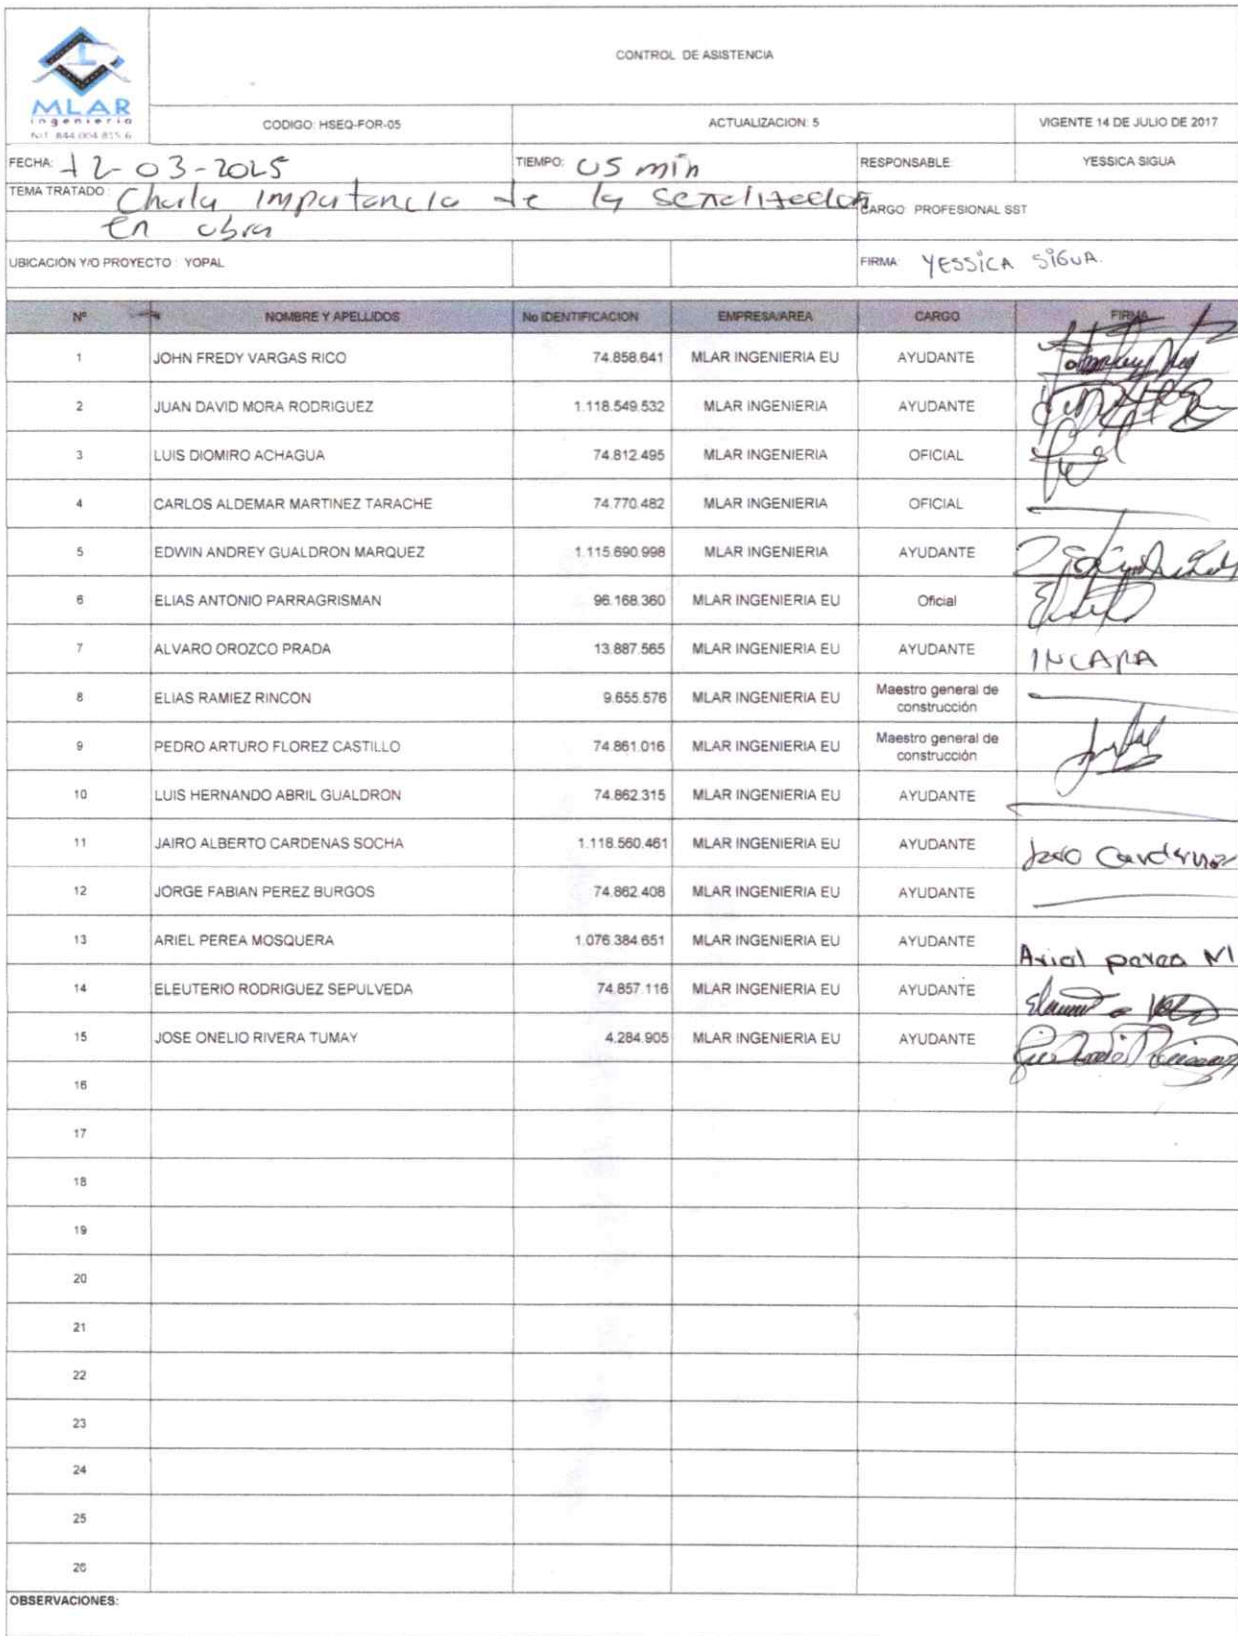 MLAR
ingenieria
NIT. 844.004.815-6
CONTROL DE ASISTENCIA
CODIGO: HSEQ-FOR-05 ACTUALIZACION: 5 VIGENTE 14 DE JULIO DE 2017
FECHA: 12-03-2025 TIEMPO: 05 min RESPONSABLE: YESSICA SIGUA
TEMA TRATADO: Charla importancia de la señalización
en obra
CARGO: PROFESIONAL SST
UBICACIÓN Y/O PROYECTO : YOPAL FIRMA: YESSICA SIGUA.
Nº NOMBRE Y APELLIDOS No IDENTIFICACION EMPRESA/AREA CARGO FIRMA
1 JOHN FREDY VARGAS RICO 74.858.641 MLAR INGENIERIA EU AYUDANTE
2 JUAN DAVID MORA RODRIGUEZ 1.118.549.532 MLAR INGENIERIA AYUDANTE
3 LUIS DIOMIRO ACHAGUA 74.812.495 MLAR INGENIERIA OFICIAL
4 CARLOS ALDEMAR MARTINEZ TARACHE 74.770.482 MLAR INGENIERIA OFICIAL
5 EDWIN ANDREY GUALDRON MARQUEZ 1.115.690.998 MLAR INGENIERIA AYUDANTE
6 ELIAS ANTONIO PARRAGRISMAN 96.168.360 MLAR INGENIERIA EU Oficial
7 ALVARO OROZCO PRADA 13.887.565 MLAR INGENIERIA EU AYUDANTE INCAPA
8 ELIAS RAMIEZ RINCON 9.655.576 MLAR INGENIERIA EU Maestro general de construcción
9 PEDRO ARTURO FLOREZ CASTILLO 74.861.016 MLAR INGENIERIA EU Maestro general de construcción
10 LUIS HERNANDO ABRIL GUALDRON 74.862.315 MLAR INGENIERIA EU AYUDANTE
11 JAIRO ALBERTO CARDENAS SOCHA 1.118.560.461 MLAR INGENIERIA EU AYUDANTE Cardenas
12 JORGE FABIAN PEREZ BURGOS 74.862.408 MLAR INGENIERIA EU AYUDANTE
13 ARIEL PEREA MOSQUERA 1.076.384.651 MLAR INGENIERIA EU AYUDANTE Ariel perea M
14 ELEUTERIO RODRIGUEZ SEPULVEDA 74.857.116 MLAR INGENIERIA EU AYUDANTE
15 JOSE ONELIO RIVERA TUMAY 4.284.905 MLAR INGENIERIA EU AYUDANTE
16
17
18
19
20
21
22
23
24
25
26
OBSERVACIONES: